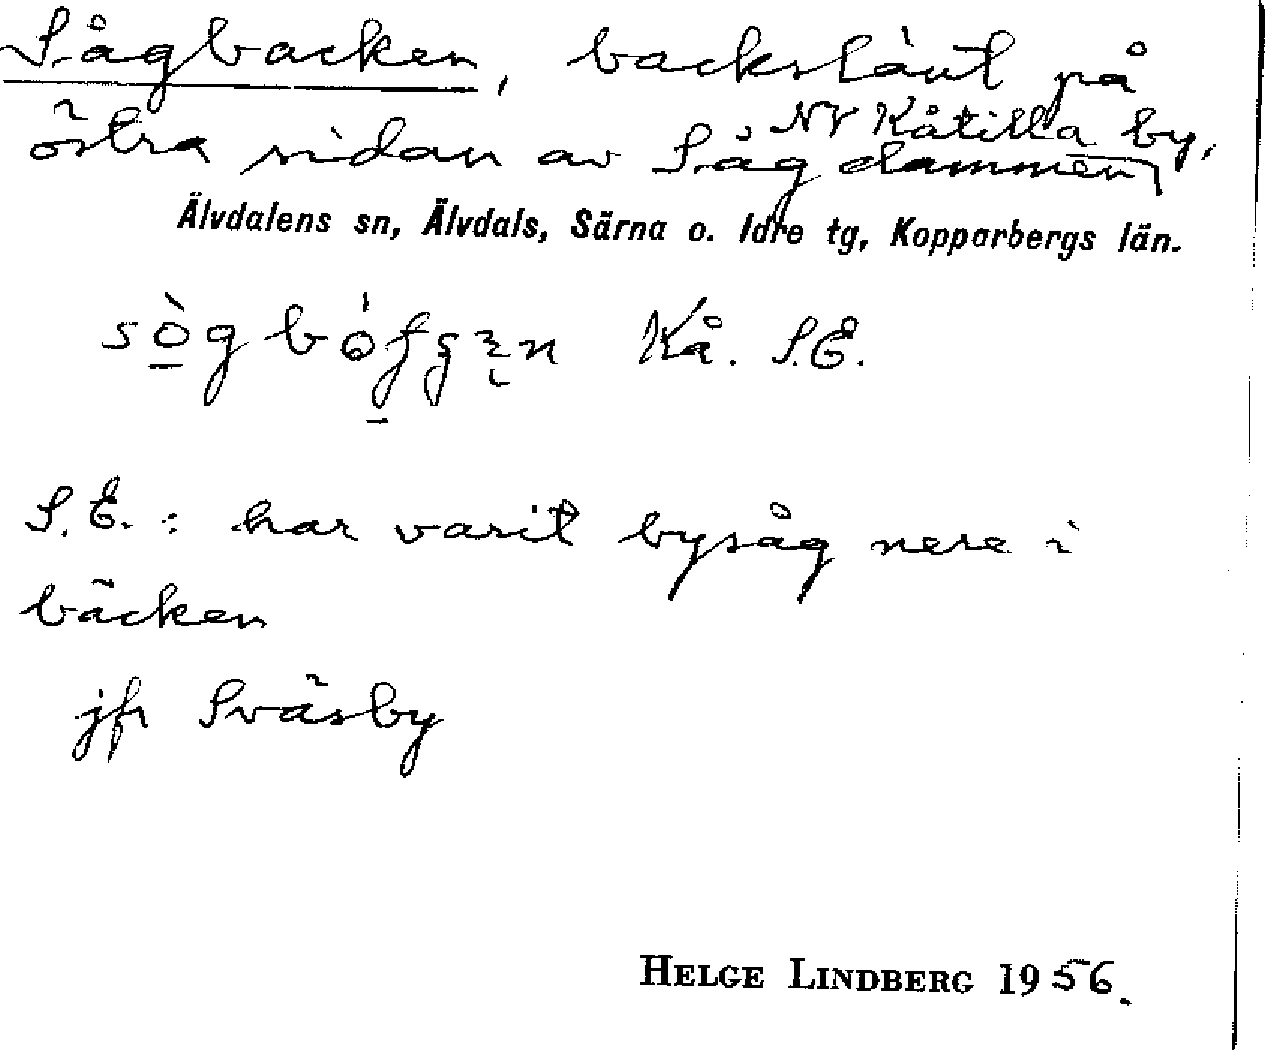 Sågbacken, backslänt på
östra sidan av Sågdammen, NV Kåtilla by,
Älvdalens sn, Älvdals, Särna o. Idre tg, Kopparbergs län.
Kå. S.E.
S.E.: har varit bysåg nere i
bäcken
jfr Sväsby
HELGE LINDBERG 1956.